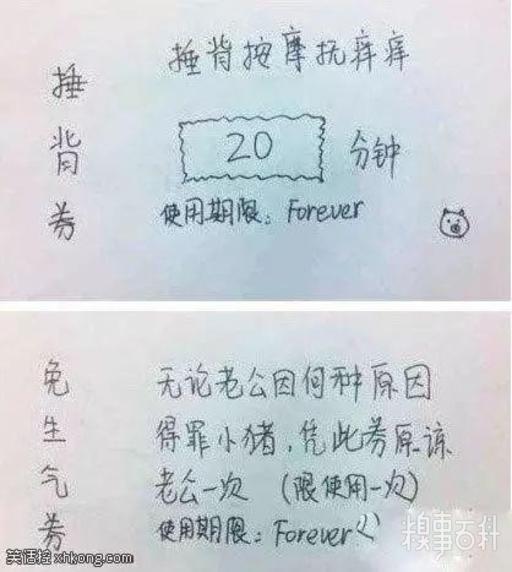 捶背券
捶背按摩抚痒痒
20 分钟
使用期限：Forever
免生气券
无论老公因何种原因
得罪小猪，凭此券原谅
老公一次 （限使用一次）
使用期限：Forever
糗事百科
笑话控 xhkong.com